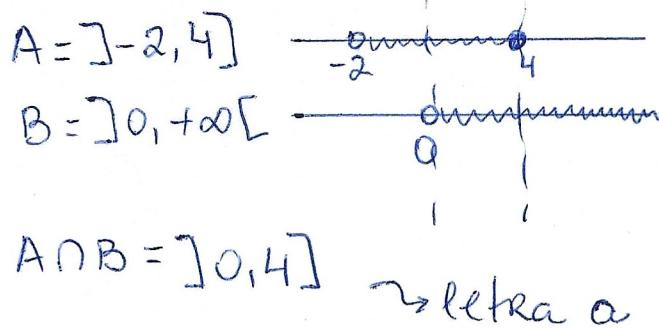 A = ]-2,4]
-2 4
B = ]0,+∞[
0
A∩B = ]0,4]
↝ letra a